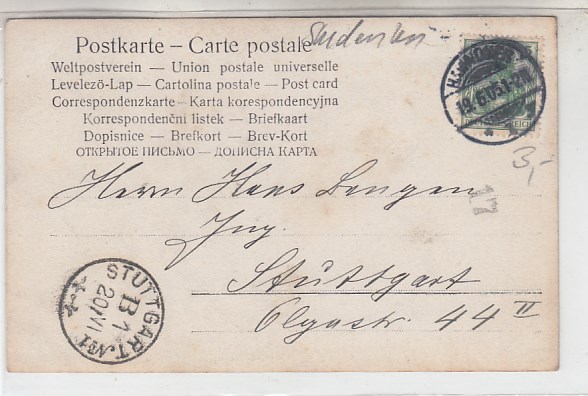 Postkarte – Carte postale
Weltpostverein — Union postale universelle
Levelező-Lap — Cartolina postale — Post card
Correspondenzkarte – Karta korespondencyjna
Korrespondenční listek — Briefkaart
Dopisnice — Brefkort — Brev-Kort
ОТКРЫТОЕ ПИСЬМО — ДОПИСНА КАРТА
HANNOVER
3,-
17
Herrn Hans Bengen
Ing.
Stuttgart
Olgastr. 44 II
STUTTGART. No1
B1
20/VI